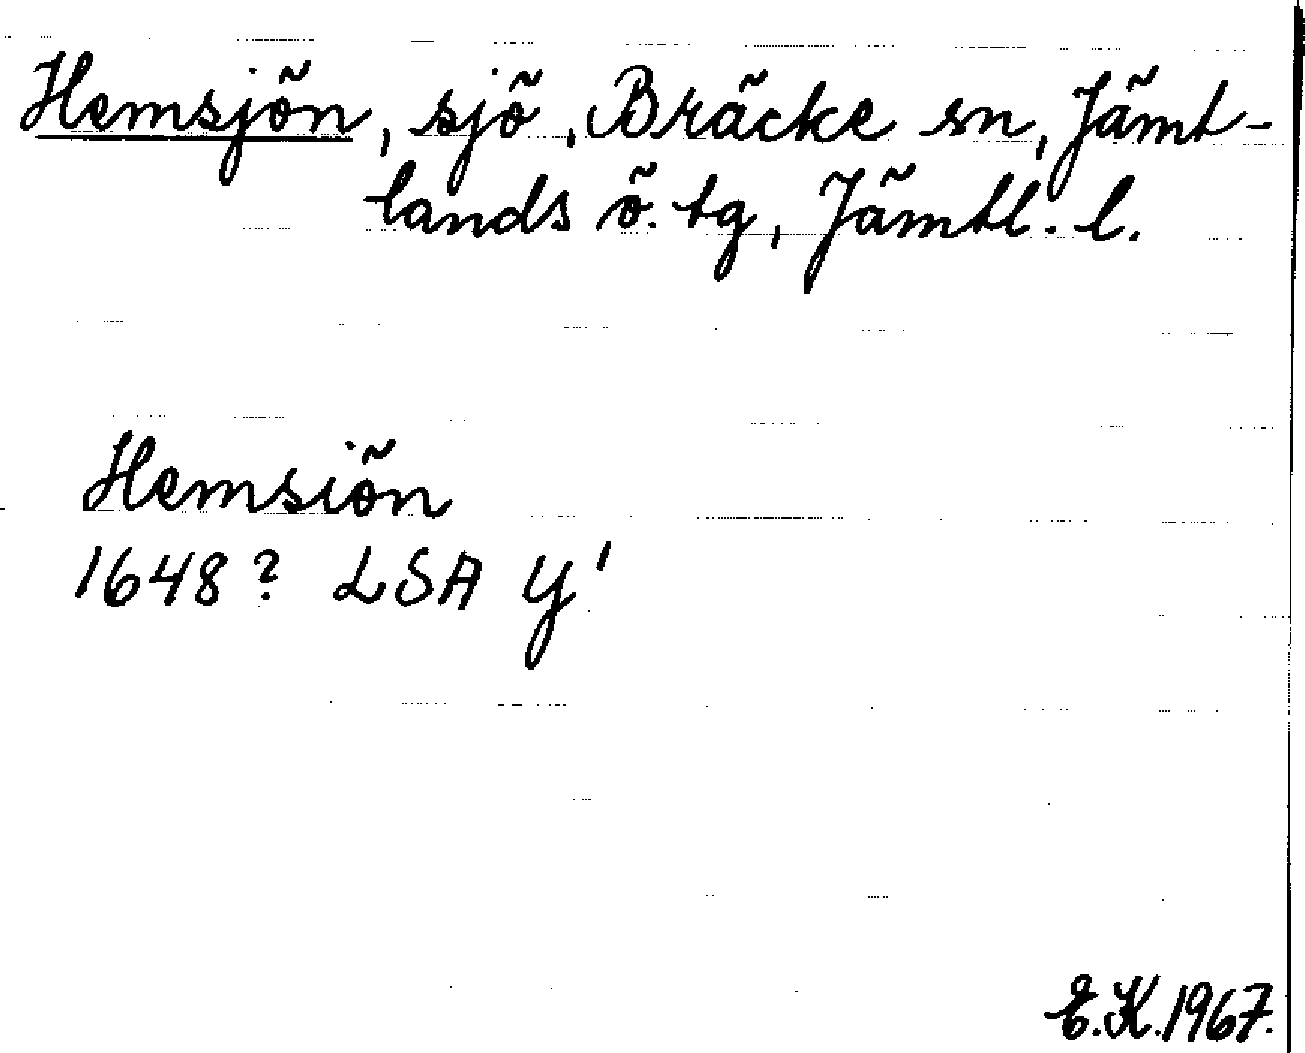 Hemsjön, sjö, Bräcke sn, Jämt-
lands ö. tg, Jämtl. l.
Hemsiön
1648? LSA Y'
E.K.1967.